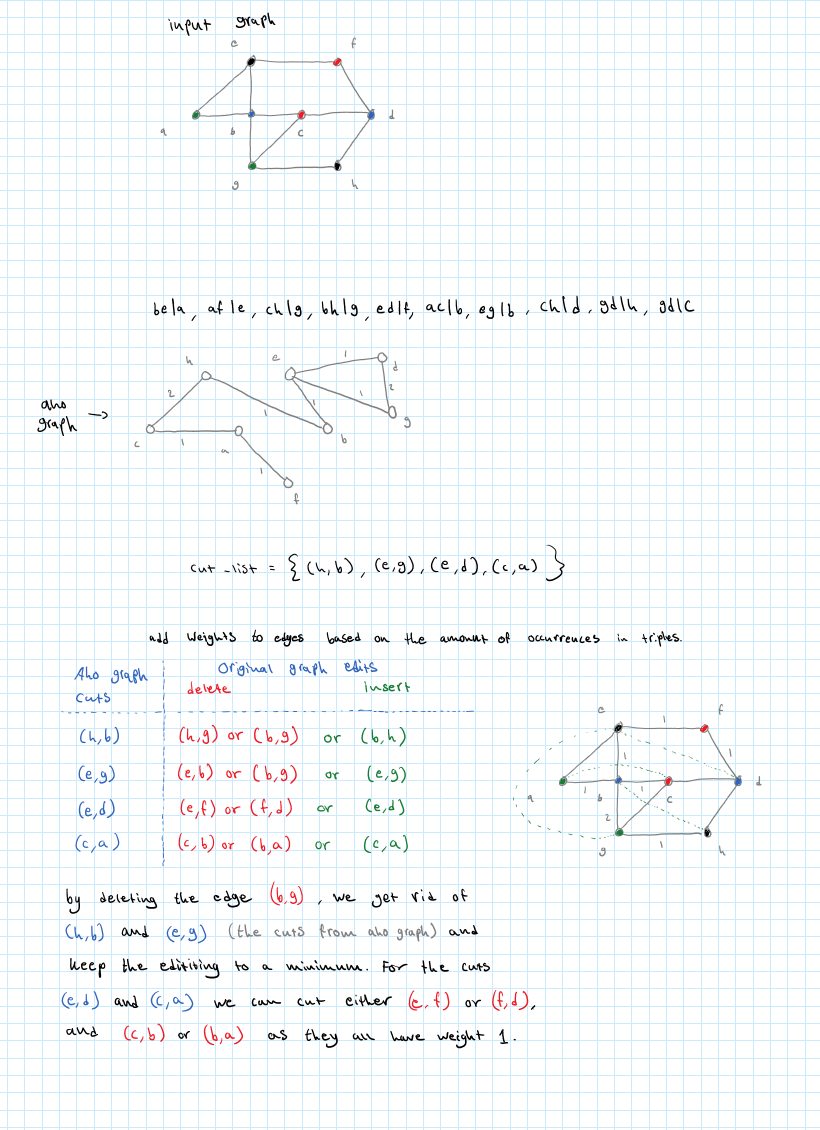 input graph
e f
a b c d
g h
be|a, af|e, ch|g, bh|g, ed|f, ac|b, eg|b, ch|d, gd|h, gd|c
aho graph →
h e 1 d
2 1 1 1 2
c 1 a b g
1
f
cut_list = {(h,b), (e,g), (e,d), (c,a)}
add weights to edges based on the amount of occurrences in triples.
Aho graph cuts
Original graph edits
delete insert
(h,b) (h,g) or (b,g) or (b,h)
(e,g) (e,b) or (b,g) or (e,g)
(e,d) (e,f) or (f,d) or (e,d)
(c,a) (c,b) or (b,a) or (c,a)
e 1 f
1 1
a 1 b 1 c d
2
g 1 h
by deleting the edge (b,g), we get rid of
(h,b) and (e,g) (the cuts from aho graph) and
keep the edititing to a minimum. For the cuts
(e,d) and (c,a) we can cut either (e,f) or (f,d),
and (c,b) or (b,a) as they all have weight 1.